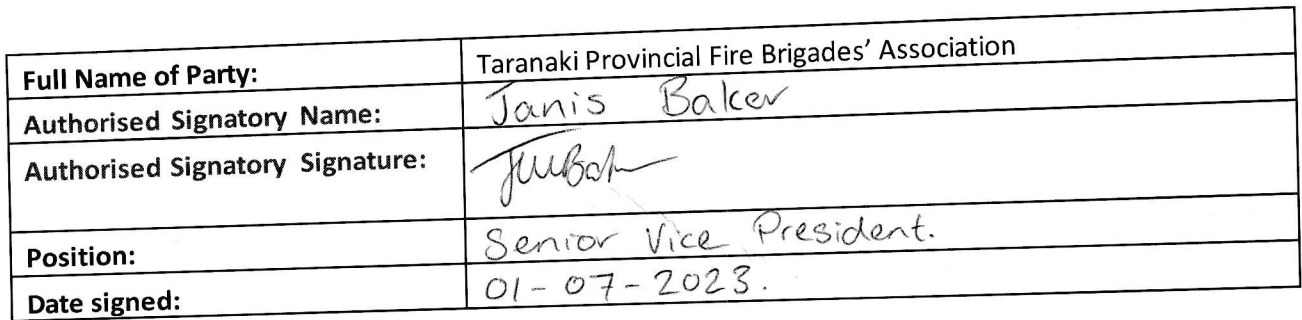 Full Name of Party: Taranaki Provincial Fire Brigades' Association
Authorised Signatory Name: Janis Baker
Authorised Signatory Signature:
Position: Senior Vice President.
Date signed: 01-07-2023.